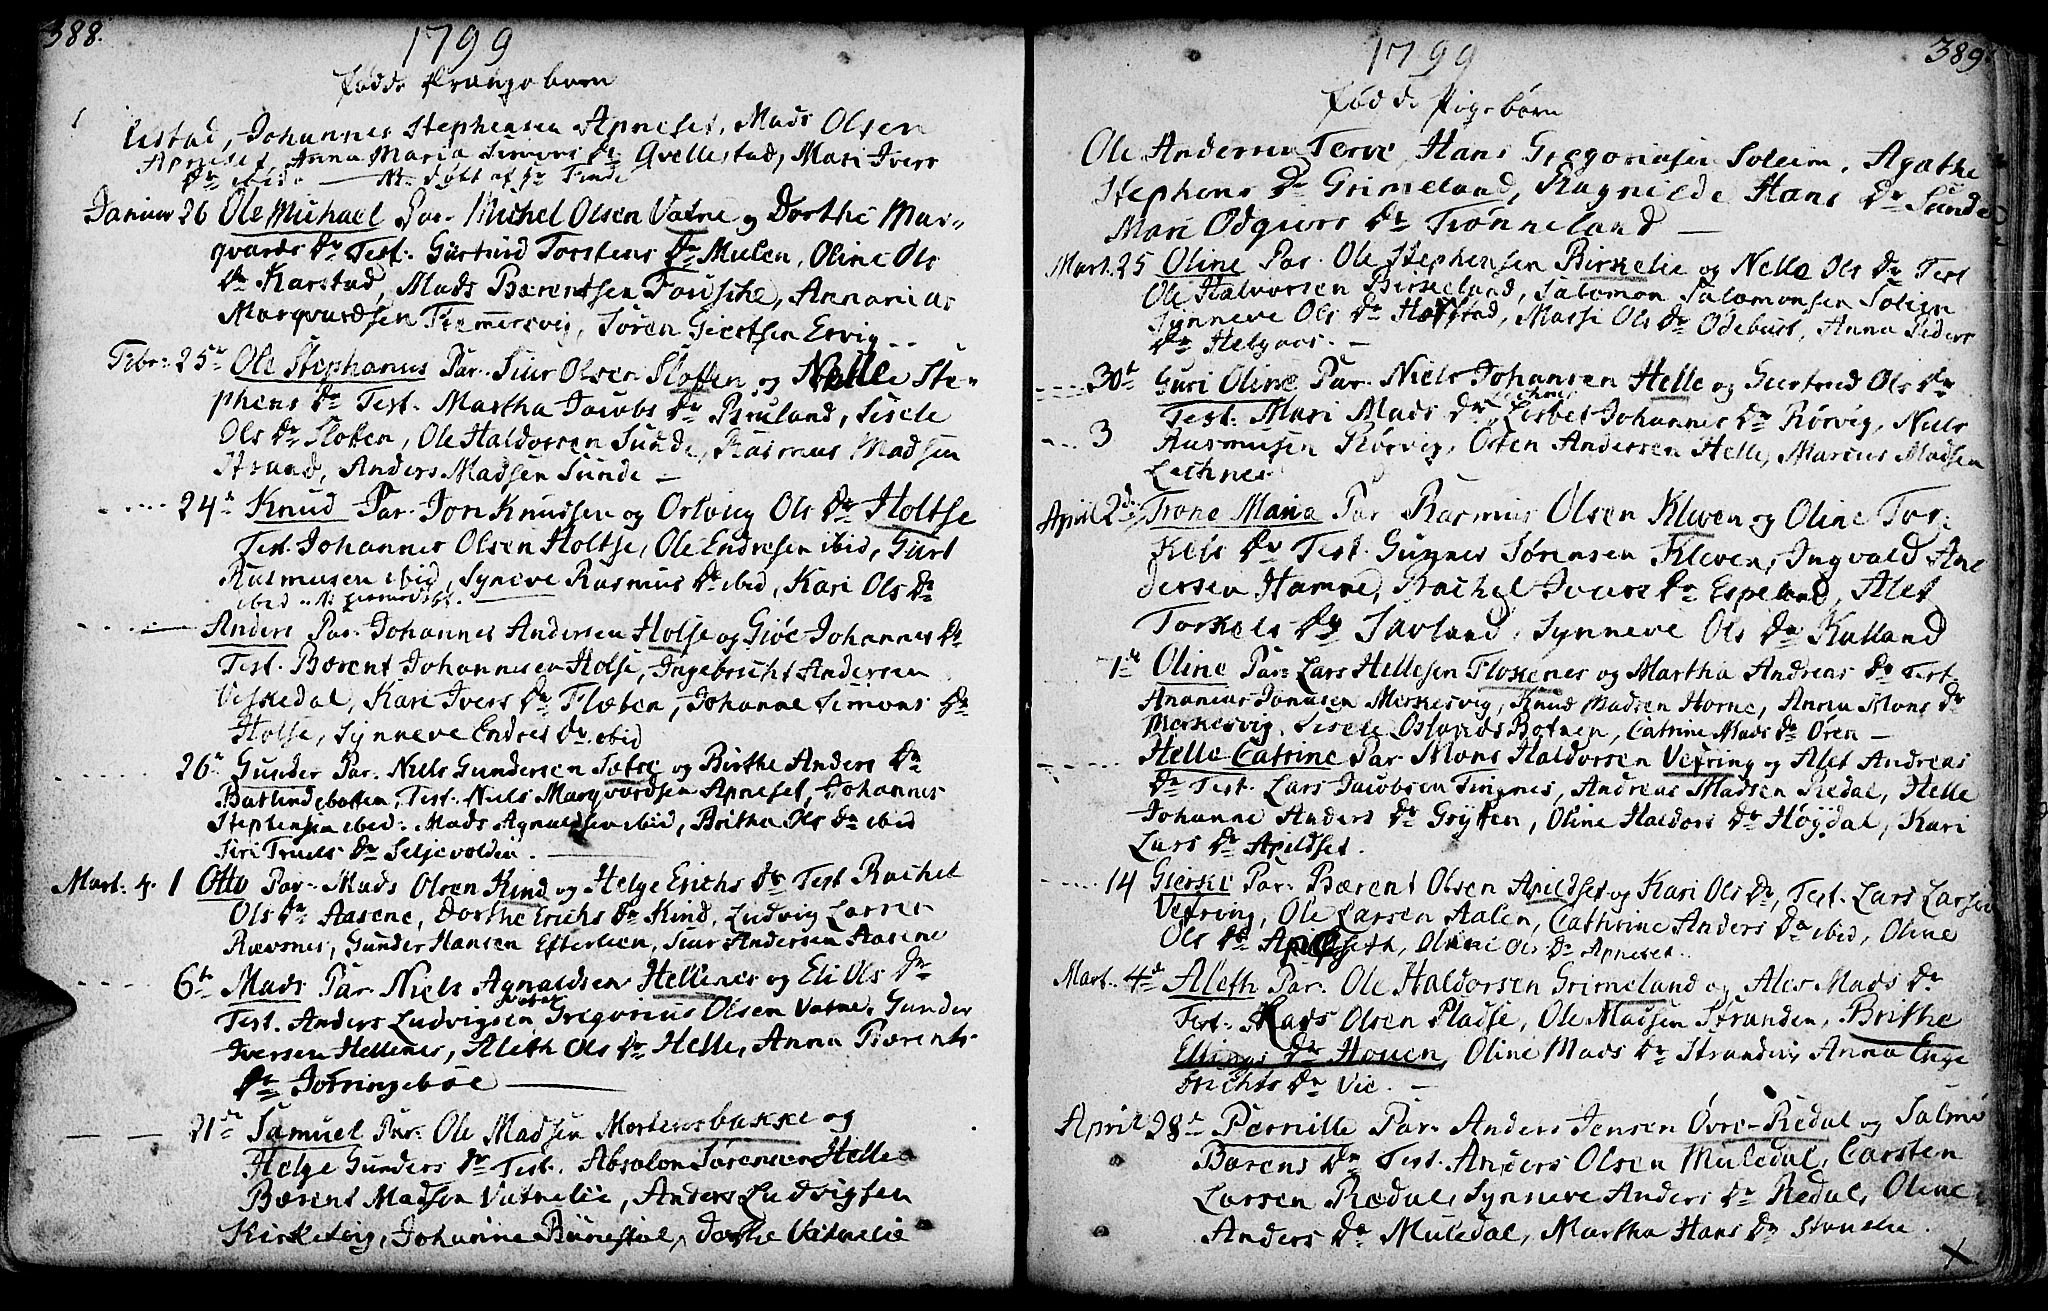 388.
1799
fødde Drænge børn
Johannes Stephensen Apneset, Mads Olsen
Apneset, Anna Maria Simons Dr Qvellestad, Mari Ivers
Dr ibid. — N. døbt af hr
Januar 26 Ole Michael Par. Michel Olsen Vatne og Dorthe Mar-
qvards Dr Test. Gurtrud Torstens Dr Mulen, Oline Ols
Dr Karstad, Mads Bærentsen Fousche, Annanias
Marqvardsen Remmersvig, Søren Giertsen Ervig --
Febr: 25de Ole Stephanus Par. Siur Olsen Slotten og Nelle Ste-
phens Dr Test. Martha Jacobs Dr Bruland, Sisele
Ols Dr Slotten, Ole Haldorsen Sunde, Rasmus Madsen
Strand, Anders Madsen Sunde —
..... 24de Knud Par. Jon Knudsen og Oslaug Ols Dr Holtse
Test. Johannes Olsen Holtse, Ole Endresen ibid, Giert
Rasmusen ibid, Syneve Rasmus Dr ibid, Kari Ols Dr
ibid -- N.
..... — Anders Par. Johannes Andersen Holse og Giøe Johannes Dr
Test. Bærent Johannesen Holse, Ingebrecht Andersen
Veskedal, Kari Ivers Dr Flæben, Johanne Simons Dr
Holse, Synneve Endres Dr ibid
..... 26de Gunder Par. Niels Gundersen Sætre og Birthe Anders Dr
Barlindebotten, Test. Niels Marqvardsen Apneset, Johannes
Stephensen ibid: Mads Agnaldsen ibid, Britha Ols Dr ibid
Siri Truels Dr Seljevolden. —
Mart. 4. 1 Otto Par. Mads Olsen Kind og Helge Erichs Dr Test Rachel
Ols Dr Aasene, Dorthe Erichs Dr Kind, Ludvig Larsen
Rævsnes, Gunder Hansen Efterleen, Siur Andersen Aasene
..... 6te Mads Par. Niels Agnaldsen Hellenes og Eli Ols Dr
Test. Anders Ludvigsen, Gregorius Olsen Vatne, Gunder
Iversen Hellenes, Aleth Ols Dr Helle, Anna Bærents
Dr Jofringebøe —
— — 21de Samuel Par. Ole Madsen Mortensbakke og
Helge Gunders Dr Test. Absalon Sørensen Helle
Bærent Madsen Vatnelie, Anders Ludvigsen
Kirketeig, Johanne Bunestøl, Dorthe Vatnelie
389.
1799
fødde Pigebørn
Ole Andersen Terve, Hans Gregoriusen Soleim, Agathe
Stephens Dr Grimeland, Ragnilde Hans Dr Sunde
Mari Odguers Dr Trønneland —
Mart. 25 Oline Par. Ole Stephensen Birkelie og Nelle Ols Dr Test
Ole Halvorsen Birkeland, Salomon Salomonsen Solem
Synneve Ols Dr Hafstad, Massi Ols Dr Odeburt, Anna Peders
Dr Helgaas. —
..... 30te Guri Oline Par. Niels Johansen Helle og Gurtrud Ols Dr
Test. Mari Mads Dr Lechnes Lisbet Johannes Dr Rørvig, Niels
.... 3 Rasmusen Rørvig, Østen Andersen Helle, Marcus Madsen
Lechnes
April 2d. Trone Maria Par. Rasmus Olsen Kleven og Oline Tor-
kels Dr Test. Gunnes Sørensen Kleven, Ingvald An-
dersen Hamne, Rachel Ivers Dr Espeland, Alet
Torkels Dr Savland, Synneve Ols Dr Kulland
1te Oline Par. Lars Hellesen Flokenes og Martha Andreas Dr Test.
Ananias Jonasen Merkesvig, Knud Madsen Horne, Anna Mons Dr
Merkesvig, Sisele Oslands Botnen, Catrine Mads Dr Øren —
Helle Catrine Par. Mons Haldorsen Vefring og Alet Andreas
Dr Test. Lars Jacobsen Tingnes, Andreas Madsen Redal, Helle
Johanne Anders Dr Grytten, Oline Haldors Dr Høydal, Kari
Lars Dr Apildset.
..... 14 Gierske Par. Bærent Olsen Apildset og Kari Ols Dr, Test. Lars Larsen
Vefring, Ole Larsen Aalen, Cathrine Anders Dr ibid, Oline
Ols Dr Apildseth, Oline Ols Dr Apneset.
Mart. 4de Aleth Par. Ole Haldorsen Grimeland og Ales Mads Dr
Test. Mads Olsen Pladse, Ole Madsen Stranden, Brithe
Ellings Dr Houen, Oline Mads Dr Stranden, Anna Enge
brichts Dr Vie. —
April 28de Pernille Par. Anders Jensen Øvre-Redal og Salmø
Bærens Dr Test. Anders Olsen Muledal, Carsten
Larsen Rædal, Synneve Anders Dr Redal, Oline
Anders Dr Muledal, Martha Hans Dr
X